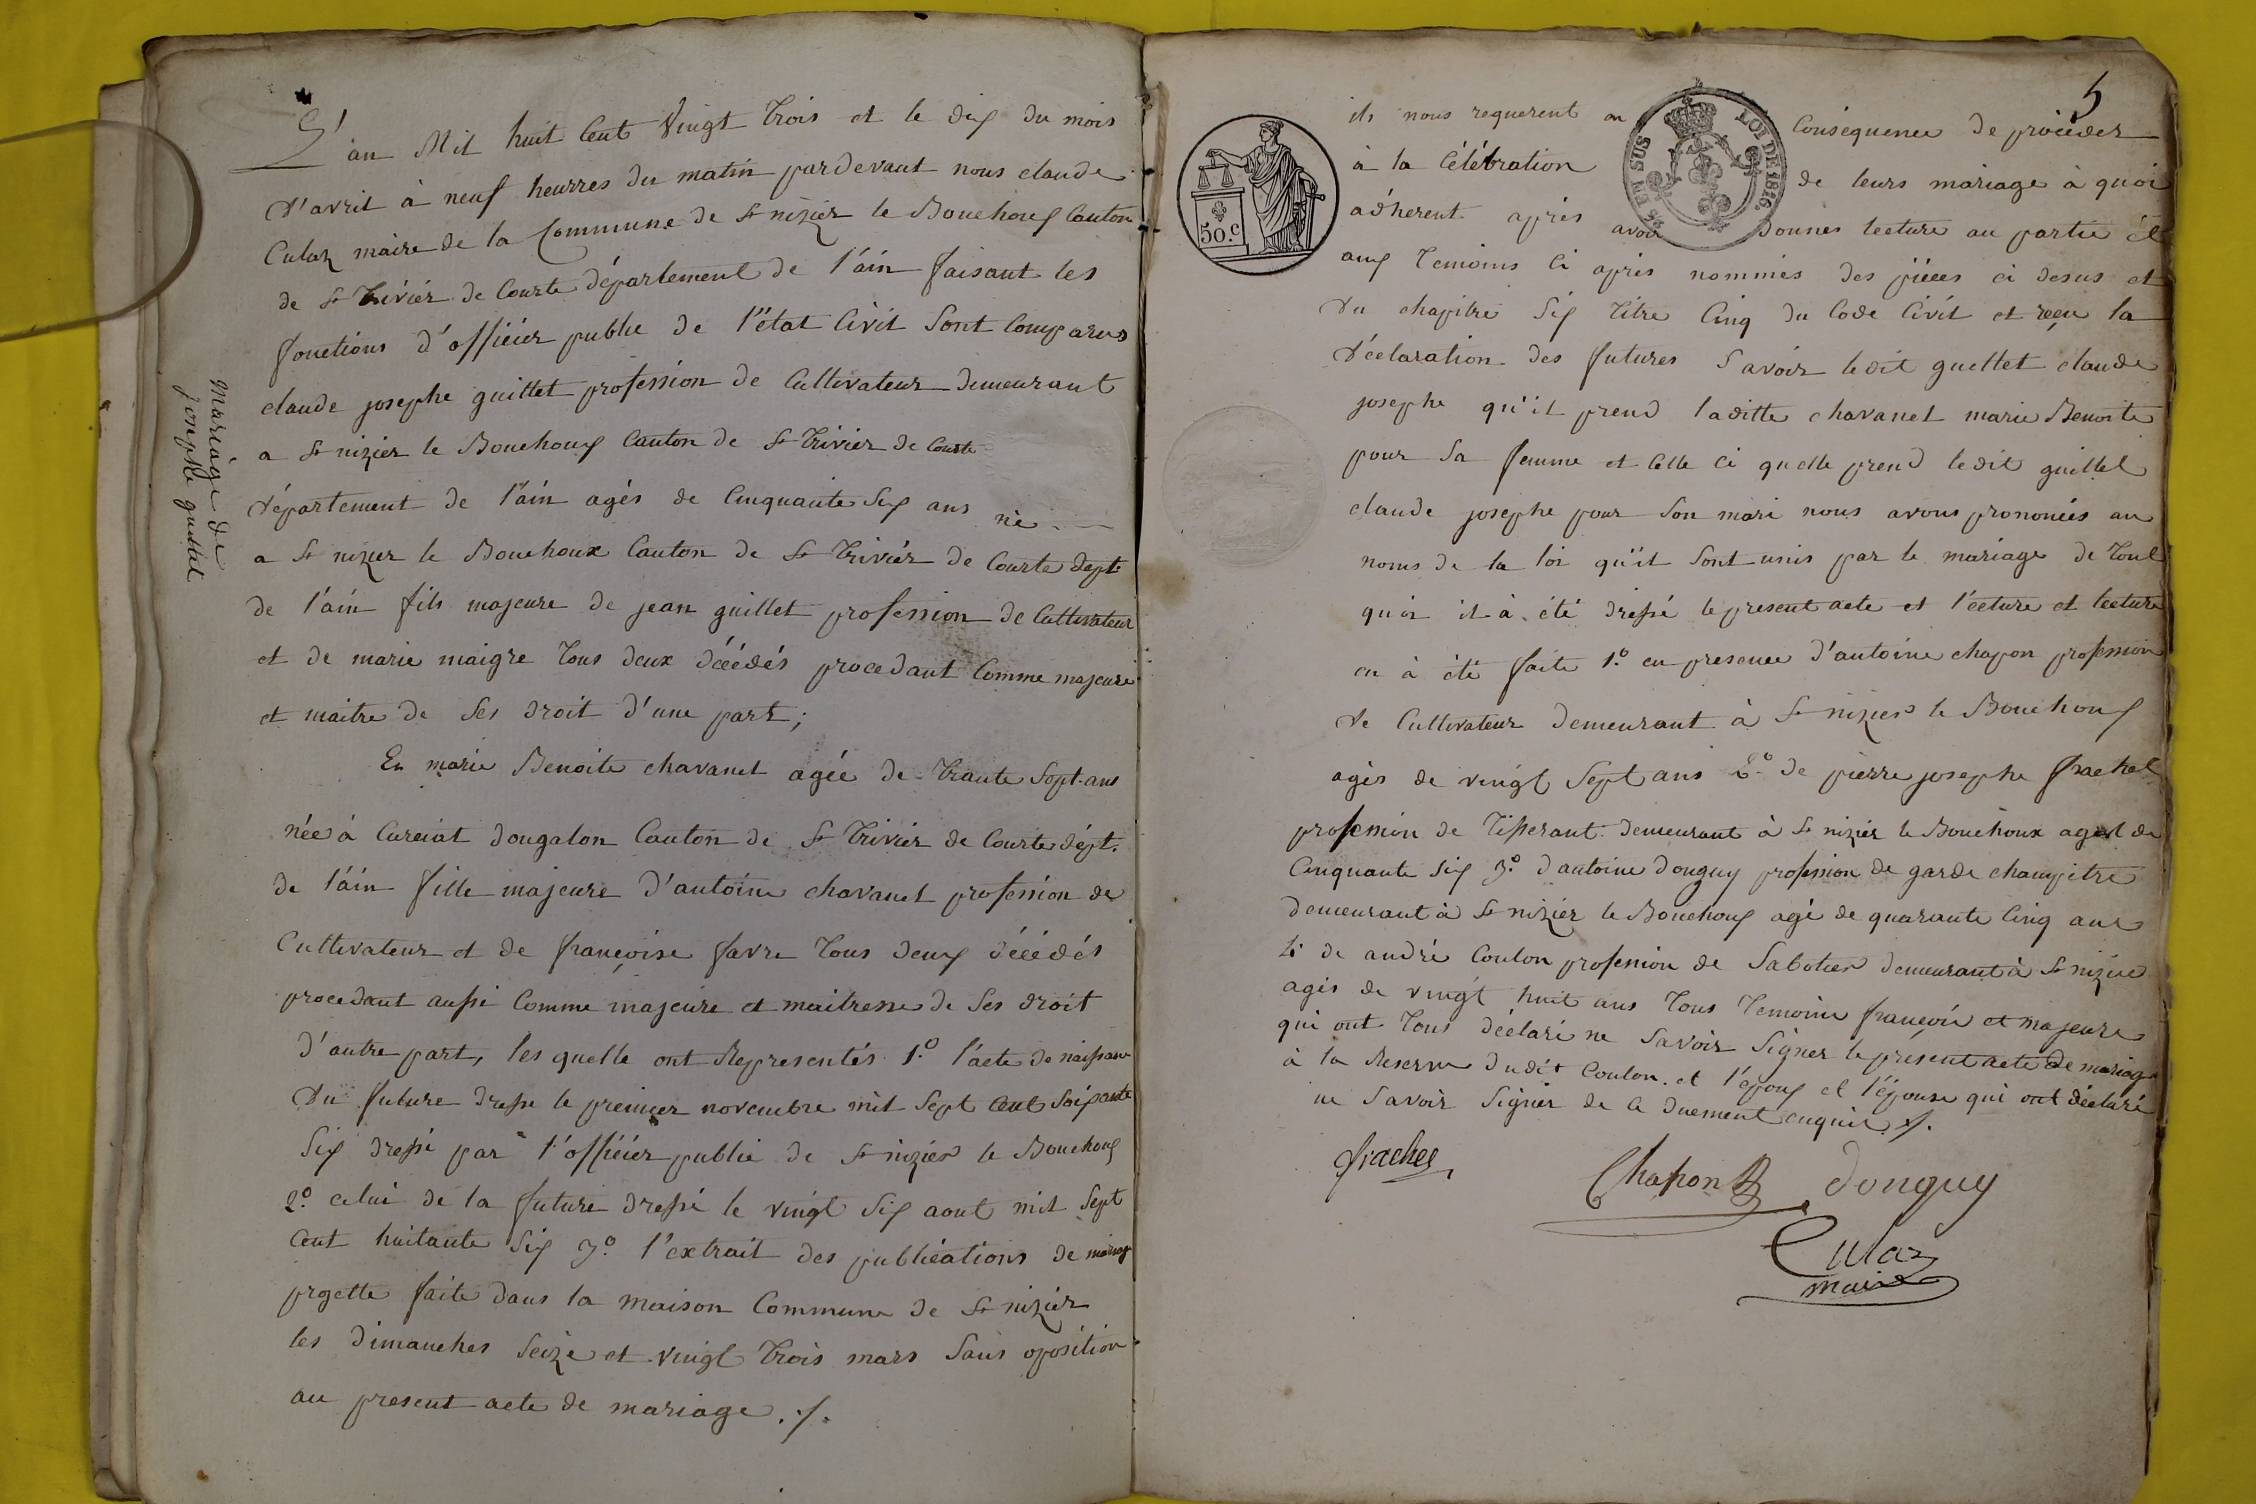 L'an Mil huit Cent Vingt trois et le dix du mois
d'avril à neuf heurres du matin pardevant nous claude
Culaz maire de la Commune de St nizier le Bouchoux Canton
de St Trivier de Courte département de l'ain faisant les
fonctions d'officier public de l'état Civil Sont Comparus
claude josephe guillet profession de Cultivateur demeurant
a St nizier le Bouchoux Canton de St Trivier de Courte
département de l'ain agés de Cinquante Six ans né
a St nizier le Bouchoux Canton de St Trivier de Courte dept
de l'ain fils majeure de jean guillet profession de Cultivateur
et de marie maigre Tous deux décédés procedant Comme majeure
et maitre de Ses droit d'une part;
En marie Benoite chavanet agée de Trante Sept ans
née à Curciat dougalon Canton de St Trivier de Courte dépt.
de l'ain fille majeure d'antoine chavanet profession de
Cultivateur et de françoise favre Tous deux décédés
procedant aussi Comme majeure et maitresse de Ses droit
d'autre part, les quelle ont Representés 1.° l'acte de naissance
du future dresse le premier novembre mil Sept Cent Soixante
Six dressé par l'officier public de St nizier le Bouchoux
2.° celui de la future dressé le vingt Six aout mil Sept
Cent huitante Six 3.° l'extrait des publications de mariage
prgette faite dans la maison Commune de St nizier
les dimanches Seize et vingt Trois mars Sans oposition
au present acte de mariage ./.
Mariage de
josephe guillet
5
50.c
LOI DE 1816.
EN SUS
ils nous requerent en Consequence de proceder
à la Célébration de leurs mariage à quoi
adherent après avoir donnes lecture au partie et
aux Temoins Ci après nommés des pieces ci desus et
du chapitre Six Titre Cinq du Code Civil et reçu la
déclaration des futures Savoir ledit guellet claude
josephe qu'il prend laditte chavanet marie Benoite
pour Sa femme et Celle Ci quelle prend ledit guillet
claude josephe pour Son mari nous avons prononcés au
noms de la loi qu'il Sont unis par le mariage de Tout
quoi il à été dressé le present acte et l'ecture et lecture
en à été faite 1.° en presence d'antoine chapon profession
de Cultivateur demeurant à St nizier le Bouchoux
agés de vingt Sept ans 2° de pierre josephe frachet
profession de Tisserant demeurant à St nizier le Bouchoux agest de
Cinquante Six 3.° d'antoine donguy profession de garde champetre
demeurant à St nizier le Bouchoux agé de quarante Cinq ans
4° de andré Coulon profession de Sabotier demeurant à St nizier
agés de vingt huit ans Tous Temoins françois et majeure
qui ont Tous déclaré ne Savoir Signer le present acte de mariage
à la Reserve dudit Coulon. et l'epoux et l'épouse qui ont déclaré
ne Savoir Signer de Ce duement enquis ./.
frachet
Chapon donguy
Culaz
maire